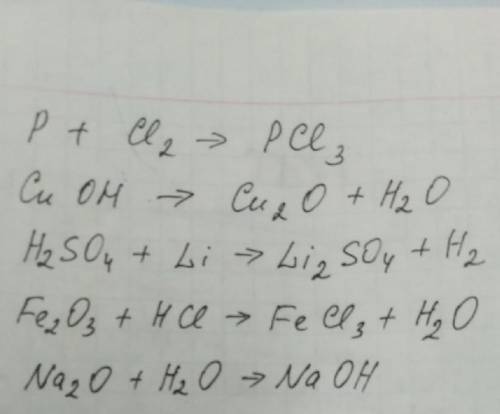 P + Cl₂ → PCl₃
CuOH → Cu₂O + H₂O
H₂SO₄ + Li → Li₂SO₄ + H₂
Fe₂O₃ + HCl → FeCl₃ + H₂O
Na₂O + H₂O → NaOH